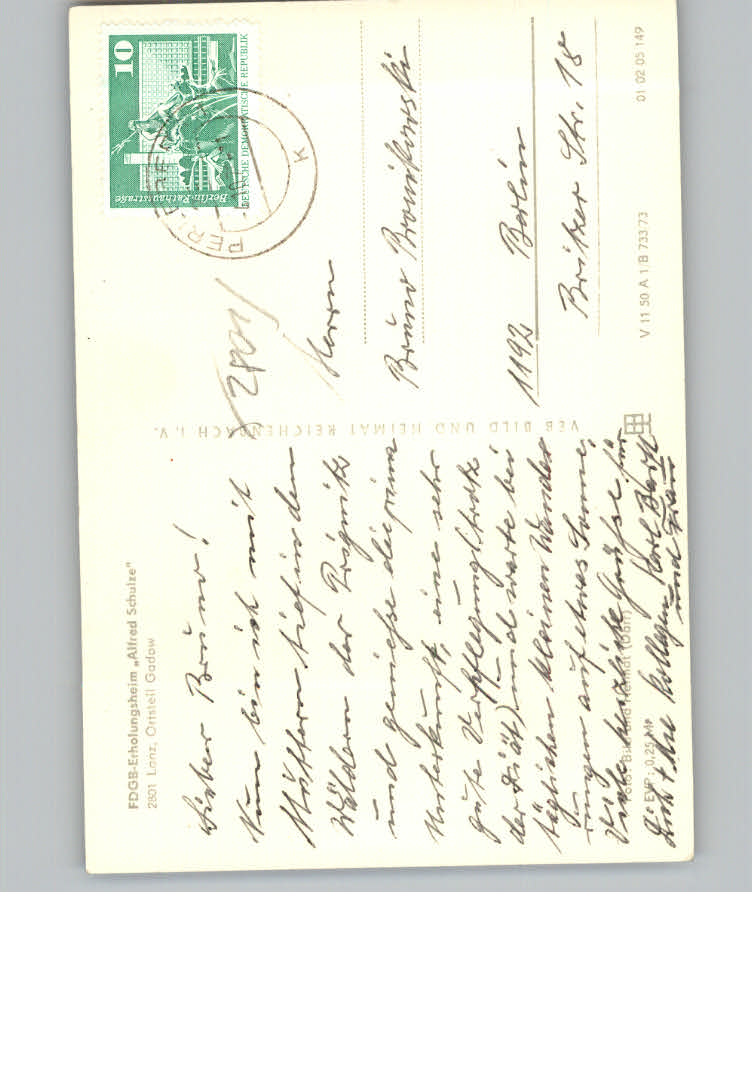 FDGB-Erholungsheim „Alfred Schulze"
2801 Lanz, Ortsteil Gadow
Lieber Bruno!
Nun bin ich mit
Muttern tief in den
Wäldern der Prignitz
und genieße die prima
Unterkunft, eine sehr
gute Verpflegung (trotz
der Diät) und warte bei
täglichen kleinen Wande
rungen auf etwas Sonne.
Viele herzliche Grüße für
Dich + die Kollegen Karl
und Frau
Foto: Bild und Heimat
EVP: 0,25 M
VEB BILD UND HEIMAT REICHENBACH I. V.
10
DEUTSCHE DEMOKRATISCHE REPUBLIK
Berlin · Rathausstraße
PERLEBERG
K
2801
Herrn
Bruno Bronikowski
1192 Berlin
Britzer Str. 18
V 11 50 A 1/B 733/73
01 02 05 149